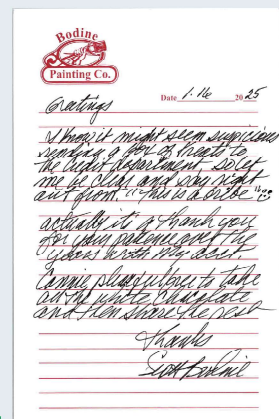 Bodine
Painting Co.
Date 1.16 2025
Greetings
I know it might seem suspicious
sending a box of treats to
the department, so let
me be clear and say right
out front. "This is a bribe"
actually it's a thank you
for your patience over the
years with my
please feel free to take
all the white chocolate
and then share the rest
Thanks
Scott Bodine